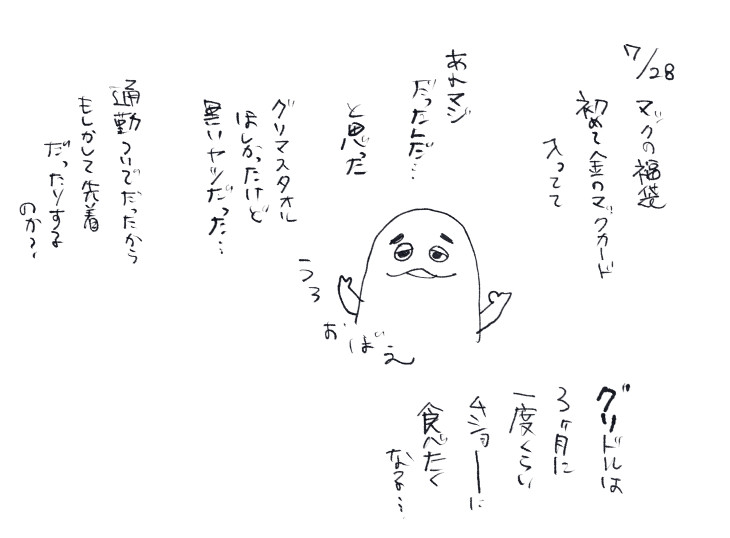 7/28
マックの福袋
初めて金のマックカード
入ってて
あれマジ
だったんだ…
と思った
グリマスタオル
ほしかったけど
黒いヤツだった…
通勤ついでだったから
もしかして先着
だったりする
のか？
うろおぼえ
グリドルは
3ヶ月に
一度くらい
ムショーに
食べたく
なる…